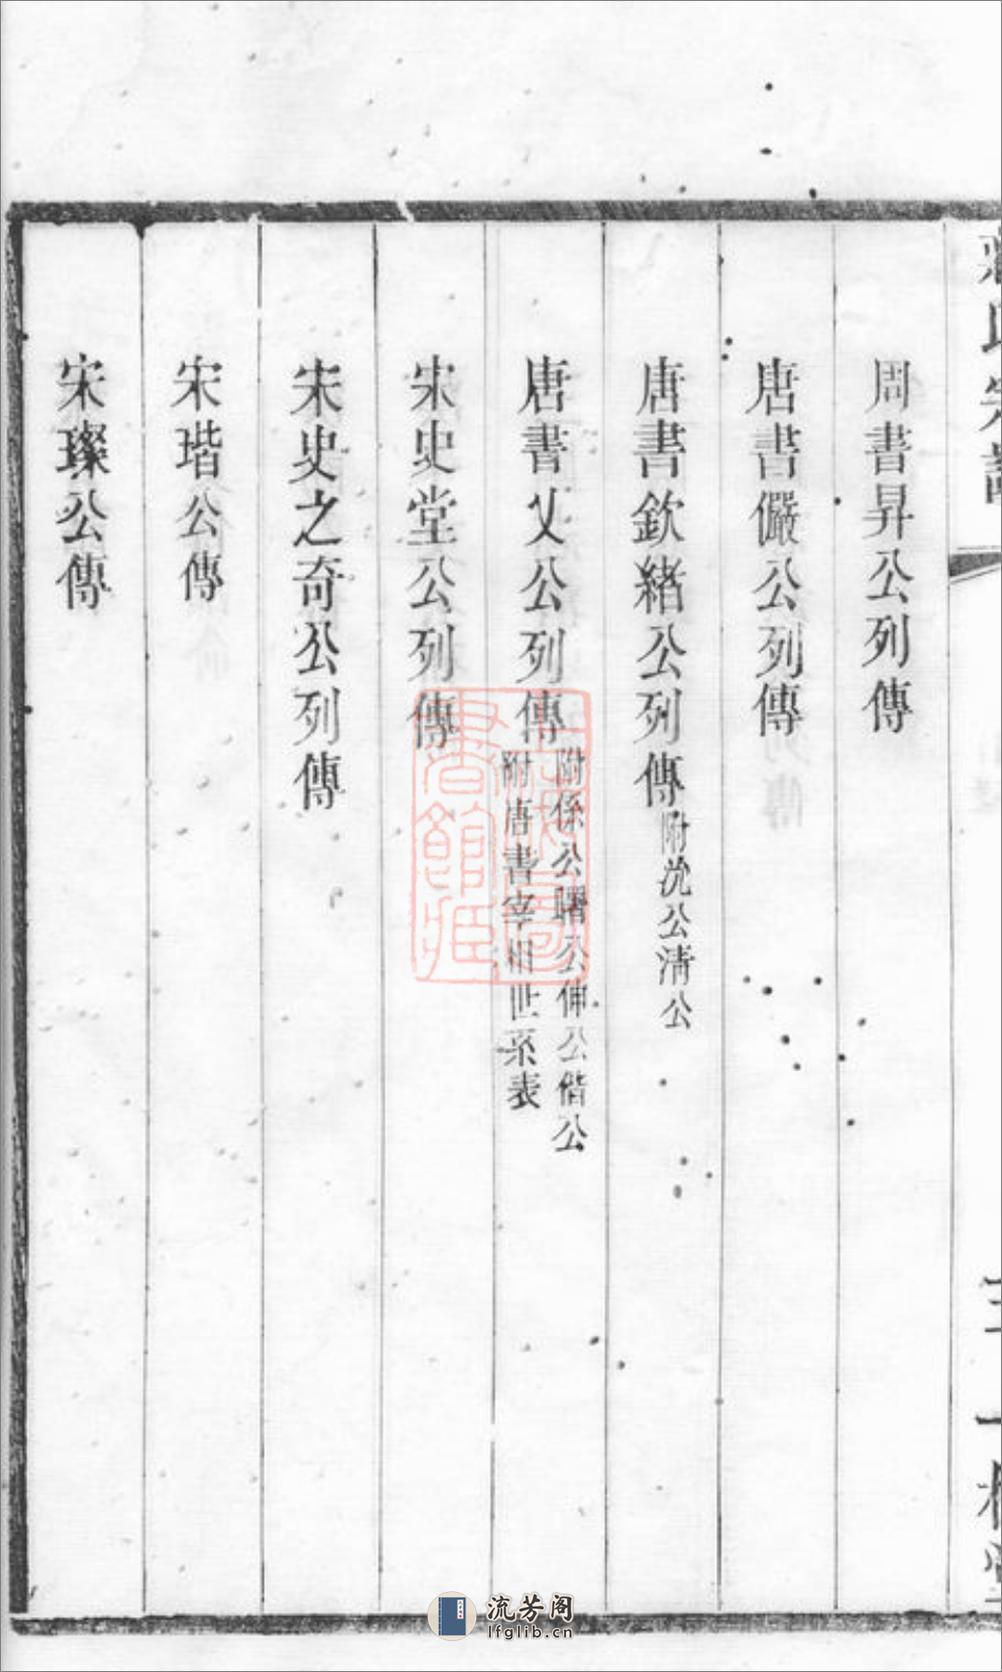 周書昇公列傳
唐書儼公列傳
唐書欽緒公列傳附沈公清公
唐書乂公列傳
附係公曙公伸公偕公
附唐書宰相世系表
宋史堂公列傳
宋史之奇公列傳
宋瑎公傳
宋璨公傳
流芳阁
lfglib.cn